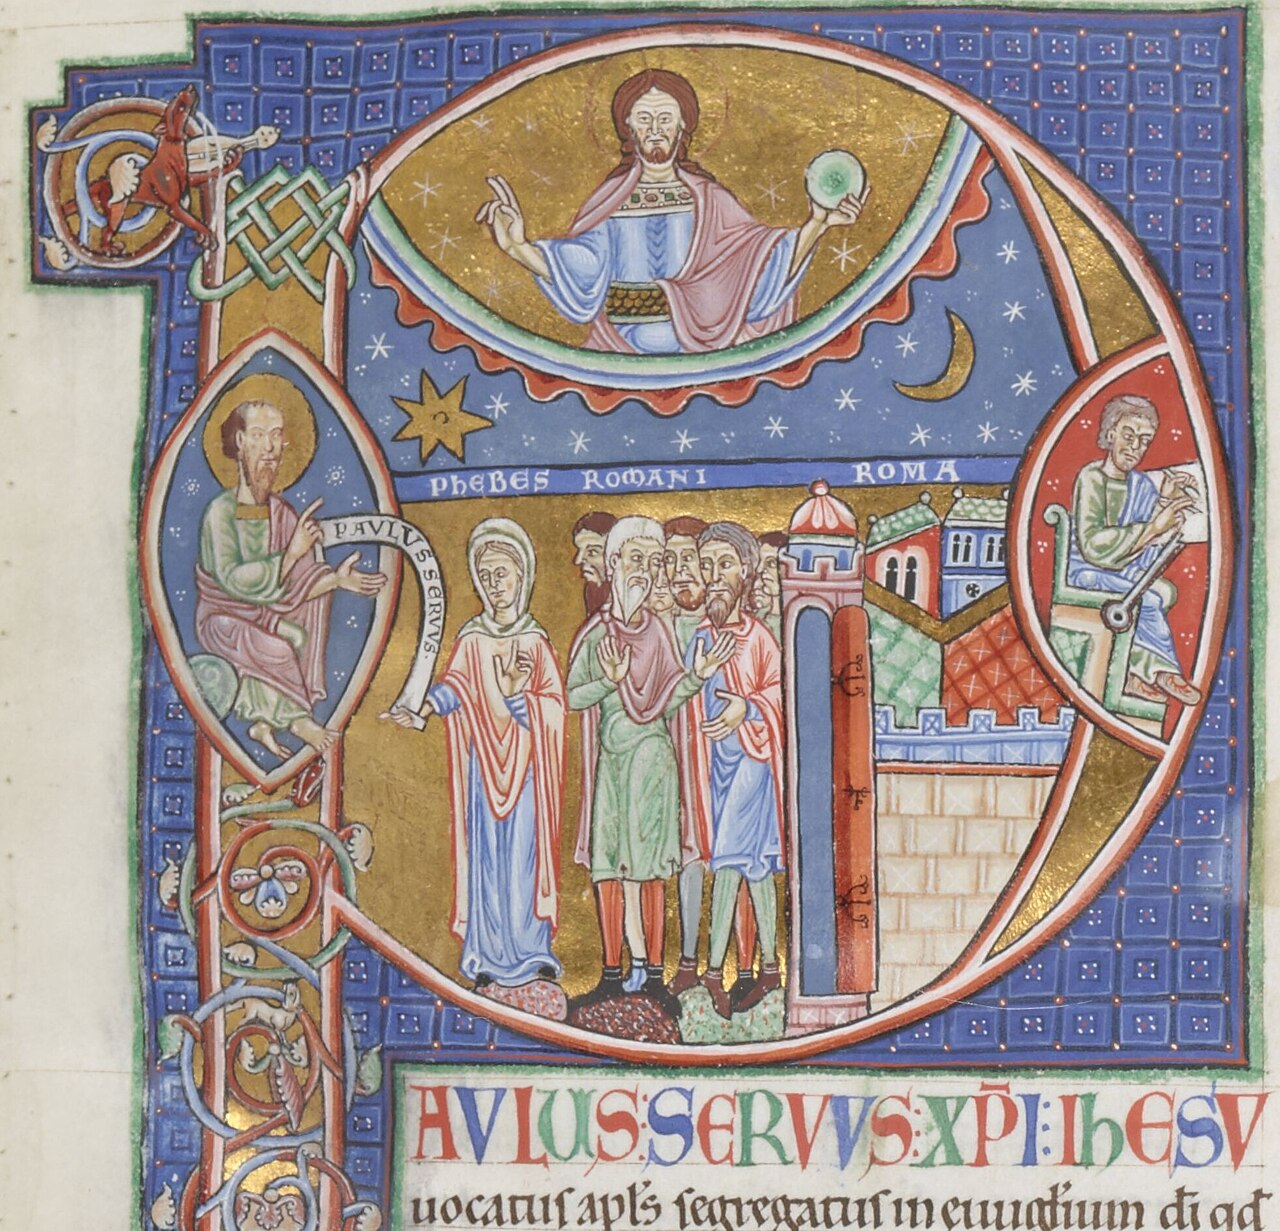 PHEBES ROMANI ROMA
PAVLVS SERVVS.
AVLUS:SERVVS:XP̄I:IHESV
uocatus apl̄s segregatus in euuāgl̄ium dī qd̄